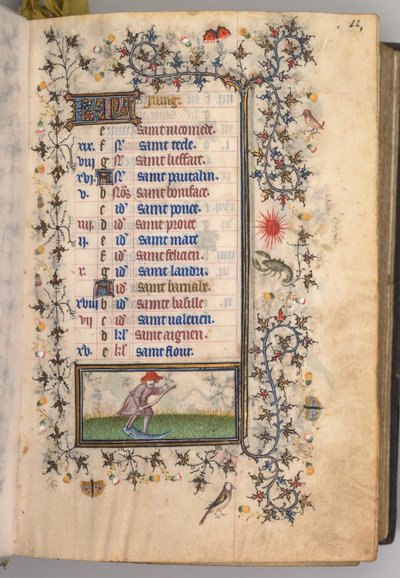 KL Juing.
e saint nicomede.
xix. f N͛. saint tecle.
viij g N͛. saint lieffart.
xvj. A N͛. saint pantalin.
v. b Nōs saint boniface.
c id᷒ saint poncet.
xiij. d id᷒ saint
ij. e id᷒ saint marc
f id᷒ saint felicien.
x. g id᷒ saint landri.
A id᷒ saint barnabe.
xviij b id᷒ sainte basille
vij c id᷒ saint valerien.
d kl saint aignen.
xv. e kl saint flour.